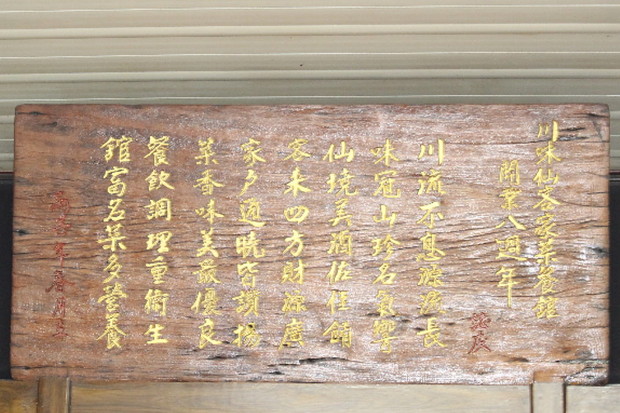 川味仙客家菜餐館
開業八週年
誌慶
川流不息源流長
味冠山珍名氣響
仙境美酒佐佳餚
客來四方財源廣
家戶通曉皆讚揚
菜香味美最優良
餐飲調理重衛生
館富名菜多營養